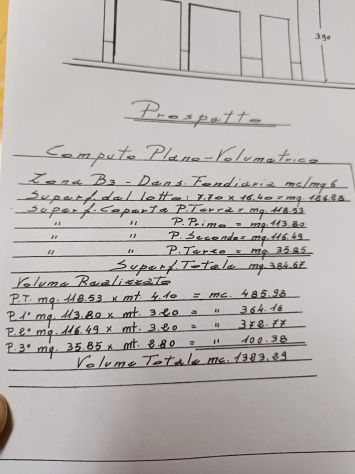 3.90
Prospetto
Computo Plano-Volumetrico
Zona B3 - Dens. Fondiaria mc/mq 6
Superf. del lotto: 7.70 × 16.40 = mq 126.28
Superf. Coperta P. Terra = mq. 118.53
" " P. Primo = mq. 113.80
" " P. Secondo = mq. 116.49
" " P. Terzo = mq. 35.85
Superf. Totale mq. 384.67
Volume Realizzato
P.T. mq. 118.53 × mt. 4.10 = mc. 485.98
P.1° mq. 113.80 × mt. 3.20 = " 364.16
P.2° mq. 116.49 × mt. 3.20 = " 372.77
P.3° mq. 35.85 × mt. 2.80 = " 100.38
Volume Totale mc. 1323,29